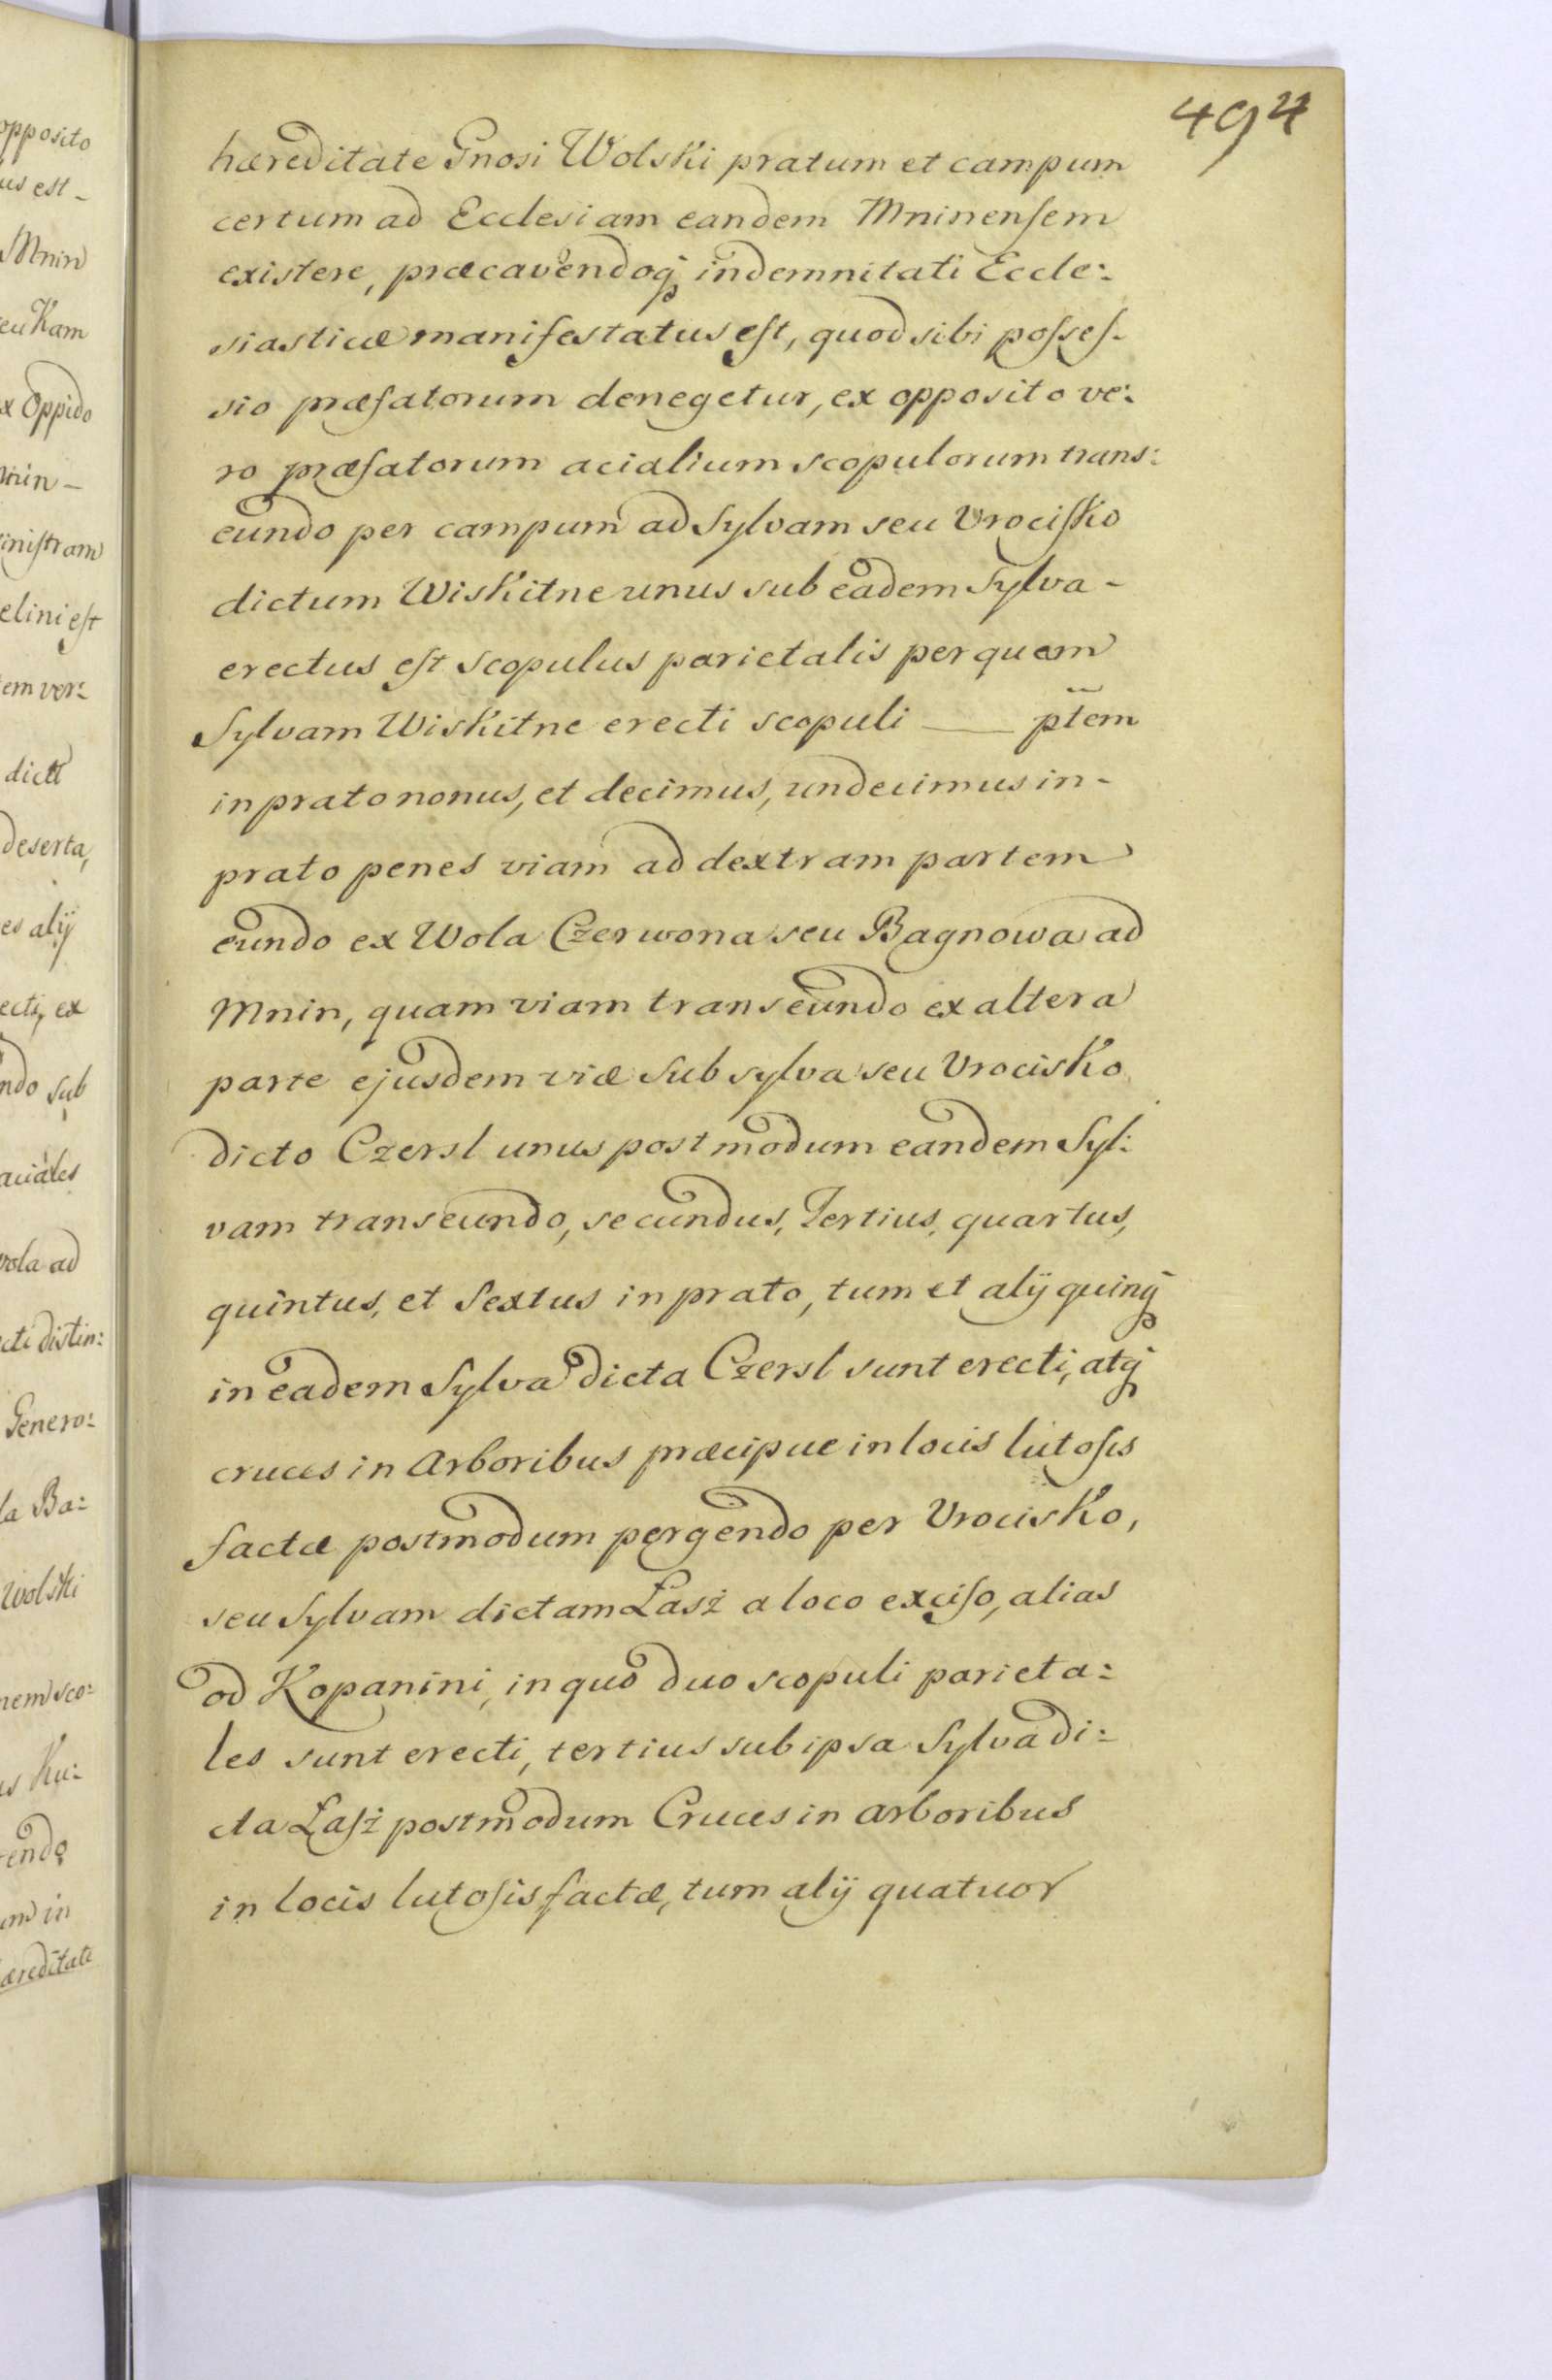 494
hæreditate Gnosi Wolski pratum et campum
certum ad Ecclesiam eandem Mninenſem
existere, præcavendoq́ indemnitati Eccle:
siasticæ manifestatus eſt, quod sibi poſseſ-
sio præfatorum denegetur, ex opposito ve:
ro præfatorum acialium scopulorum trans:
eundo per campum ad Sylvam seu Vrociſko
dictum Wiskitne unus sub eadem Sylva -
erectus eſt scopulus parietalis per quam
Sylvam Wiskitne erecti scopuli — ptem
in prato nonus, et decimus, undecimus in -
prato penes viam ad dextram partem
eundo ex Wola Czerwona seu Bagnowa ad
Mnin, quam viam transeundo ex altera
parte ejusdem viæ sub sylva seu Vrocisko
dicto Czersl unus postmodum eandem Syl:
vam transeundo, secundus, Tertius, quartus,
quintus, et Sextus in prato, tum et alÿ quinq́
in eadem Sylva dicta Czersl sunt erecti, atq́
cruces in Arboribus præcipue in locis lutoſis
factæ postmodum pergendo per Vrocisko,
seu Sylvam dictam Łasż a loco exciſo, alias
od Kopanini, in quo duo scopuli parieta:
les sunt erecti, tertius sub ipsa Sylva di:
cta Łaſż postmodum Cruces in arboribus
in locis lutoſis factæ, tum alÿ quatuor
opposito
us est -
Mnin
eu Kam
x Oppido
nin -
iniſtram
elini eſt
em ver:
dict
deserta,
es alÿ
ecti, ex
ndo sub
aciales
ola ad
cti distin:
Genero:
la Ba:
Wolski
nem sco:
s Ku:
endo
um in
æreditate